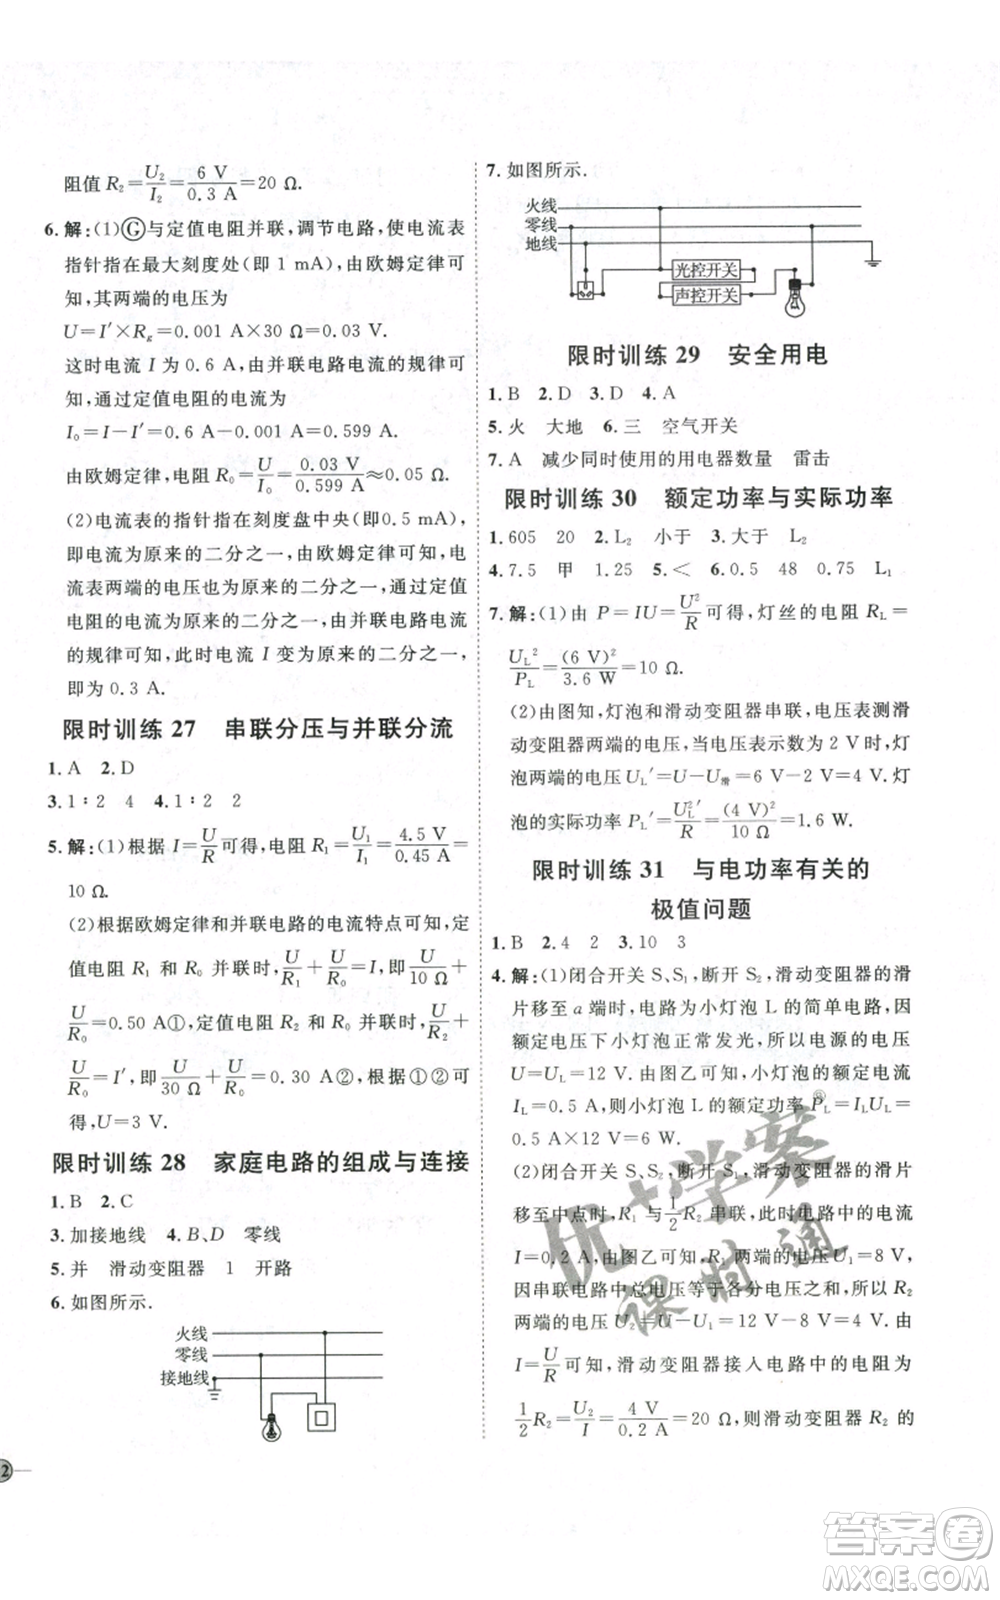 阻值 R₂=U₂/I₂=6 V/0.3 A=20 Ω.
6.解:(1)Ⓖ与定值电阻并联,调节电路,使电流表
指针指在最大刻度处(即 1 mA),由欧姆定律可
知,其两端的电压为
U=I′×Rg=0.001 A×30 Ω=0.03 V.
这时电流 I 为 0.6 A,由并联电路电流的规律可
知,通过定值电阻的电流为
I₀=I-I′=0.6 A-0.001 A=0.599 A.
由欧姆定律,电阻 R₀=U/I₀=0.03 V/0.599 A≈0.05 Ω.
(2)电流表的指针指在刻度盘中央(即0.5 mA),
即电流为原来的二分之一,由欧姆定律可知,电
流表两端的电压也为原来的二分之一,通过定值
电阻的电流为原来的二分之一,由并联电路电流
的规律可知,此时电流 I 变为原来的二分之一,
即为 0.3 A.
限时训练 27 串联分压与并联分流
1.A 2.D
3.1∶2 4 4.1∶2 2
5.解:(1)根据 I=U/R可得,电阻 R₁=U₁/I₁=4.5 V/0.45 A=
10 Ω.
(2)根据欧姆定律和并联电路的电流特点可知,定
值电阻 R₁ 和 R₀ 并联时,U/R₁+U/R₀=I,即U/10 Ω+
U/R₀=0.50 A①,定值电阻 R₂ 和 R₀ 并联时,U/R₂+
U/R₀=I′,即U/30 Ω+U/R₀=0.30 A②,由①②可
得,U=3 V.
限时训练 28 家庭电路的组成与连接
1.B 2.C
3.加接地线 4.B、D 零线
5.并 滑动变阻器 1 开路
6.如图所示.
火线
零线
接地线
2
7.如图所示.
火线
零线
地线
光控开关
声控开关
限时训练 29 安全用电
1.B 2.D 3.D 4.A
5.火 大地 6.三 空气开关
7.A 减少同时使用的用电器数量 雷击
限时训练 30 额定功率与实际功率
1.605 20 2.L₂ 小于 3.大于 L₂
4.7.5 甲 1.25 5.< 6.0.5 48 0.75 L₁
7.解:(1)由 P=IU=U²/R可得,灯丝的电阻 R_L=
U_L²/P_L=(6 V)²/3.6 W=10 Ω.
(2)由图知,灯泡和滑动变阻器串联,电压表测滑
动变阻器两端的电压,当电压表示数为 2 V 时,灯
泡两端的电压 U_L′=U-U滑=6 V-2 V=4 V.灯
泡的实际功率 P_L′=U_L²′/R=(4 V)²/10 Ω=1.6 W.
限时训练 31 与电功率有关的
极值问题
1.B 2.4 2 3.10 3
4.解:(1)闭合开关 S、S₁,断开 S₂,滑动变阻器的滑
片移至 a 端时,电路为小灯泡 L 的简单电路,因
额定电压下小灯泡正常发光,所以电源的电压
U=U_L=12 V.由图乙可知,小灯泡的额定电流
I_L=0.5 A,则小灯泡 L 的额定功率 P_L=I_LU_L=
0.5 A×12 V=6 W.
(2)闭合开关 S、S₂,断开 S₁,滑动变阻器的滑片
移至中点时,R₁ 与1/2R₂ 串联,此时电路中的电流
I=0.2 A,由图乙可知,R₁ 两端的电压U₁=8 V,
因串联电路中总电压等于各分电压之和,所以 R₂
两端的电压 U₂=U-U₁=12 V-8 V=4 V.由
I=U/R可知,滑动变阻器接入电路中的电阻为
1/2R₂=U₂/I=4 V/0.2 A=20 Ω,则滑动变阻器 R₂ 的
优+学案
课时通
答案卷
MXQE.COM